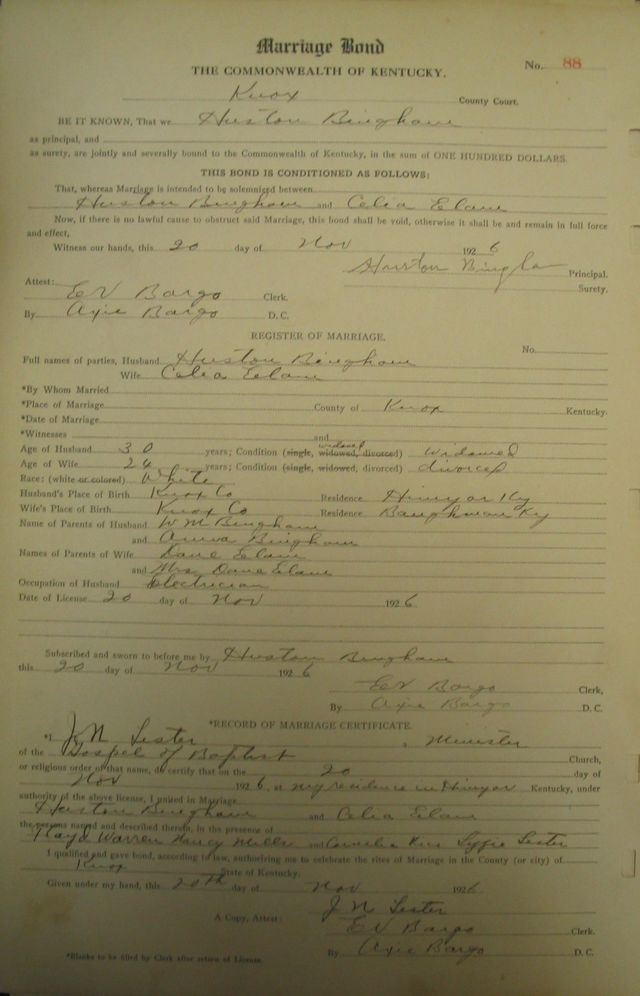 Marriage Bond
No. 88
THE COMMONWEALTH OF KENTUCKY.
Knox County Court.
BE IT KNOWN, That we Huston Bingham
as principal, and
as surety, are jointly and severally bound to the Commonwealth of Kentucky, in the sum of ONE HUNDRED DOLLARS.
THIS BOND IS CONDITIONED AS FOLLOWS:
That, whereas Marriage is intended to be solemnized between
Huston Bingham and Celia Elam
Now, if there is no lawful cause to obstruct said Marriage, this bond shall be void, otherwise it shall be and remain in full force
and effect,
Witness our hands, this 20 day of Nov 1926
Huston Bingha Principal.
Attest: Surety.
EV Bargo Clerk.
By Axie Bargo D. C.
REGISTER OF MARRIAGE.
No.
Full names of parties, Husband Huston Bingham
Wife Celia Elam
*By Whom Married
*Place of Marriage County of Knox Kentucky.
*Date of Marriage
*Witnesses and
Age of Husband 30 years; Condition (single, widowed, divorced) widowed widowed
Age of Wife 24 years; Condition (single, widowed, divorced) divorced
Race: (white or colored) White
Husband's Place of Birth Knox Co Residence Hinyar Ky
Wife's Place of Birth Knox Co Residence Baughman Ky
Name of Parents of Husband W M Bingham
and Bingham
Names of Parents of Wife Dave Elam
and Mrs Dave Elam
Occupation of Husband Electrician
Date of License 20 day of Nov 1926.
Subscribed and sworn to before me by Huston Bingham
this 20 day of Nov 1926
EV Bargo Clerk,
By Axie Bargo D. C.
*RECORD OF MARRIAGE CERTIFICATE.
*I J. N Lester a Minister
of the Gospel of Baptist Church,
or religious order of that name, do certify that on the 20 day of
Nov 1926, at my residence in Hinyar Kentucky, under
authority of the above license, I united in Marriage
Huston Bingham and Celia Elam
the persons named and described therein, in the presence of
Floyd Warren Nancy Mills and Cornelia Lester
I qualified and gave bond, according to law, authorizing me to celebrate the rites of Marriage in the County (or city) of
Knox State of Kentucky.
Given under my hand, this 20th day of Nov 1926
J. N Lester
A Copy, Attest: EV Bargo Clerk.
By Axie Bargo D. C.
*Blanks to be filled by Clerk after return of License.